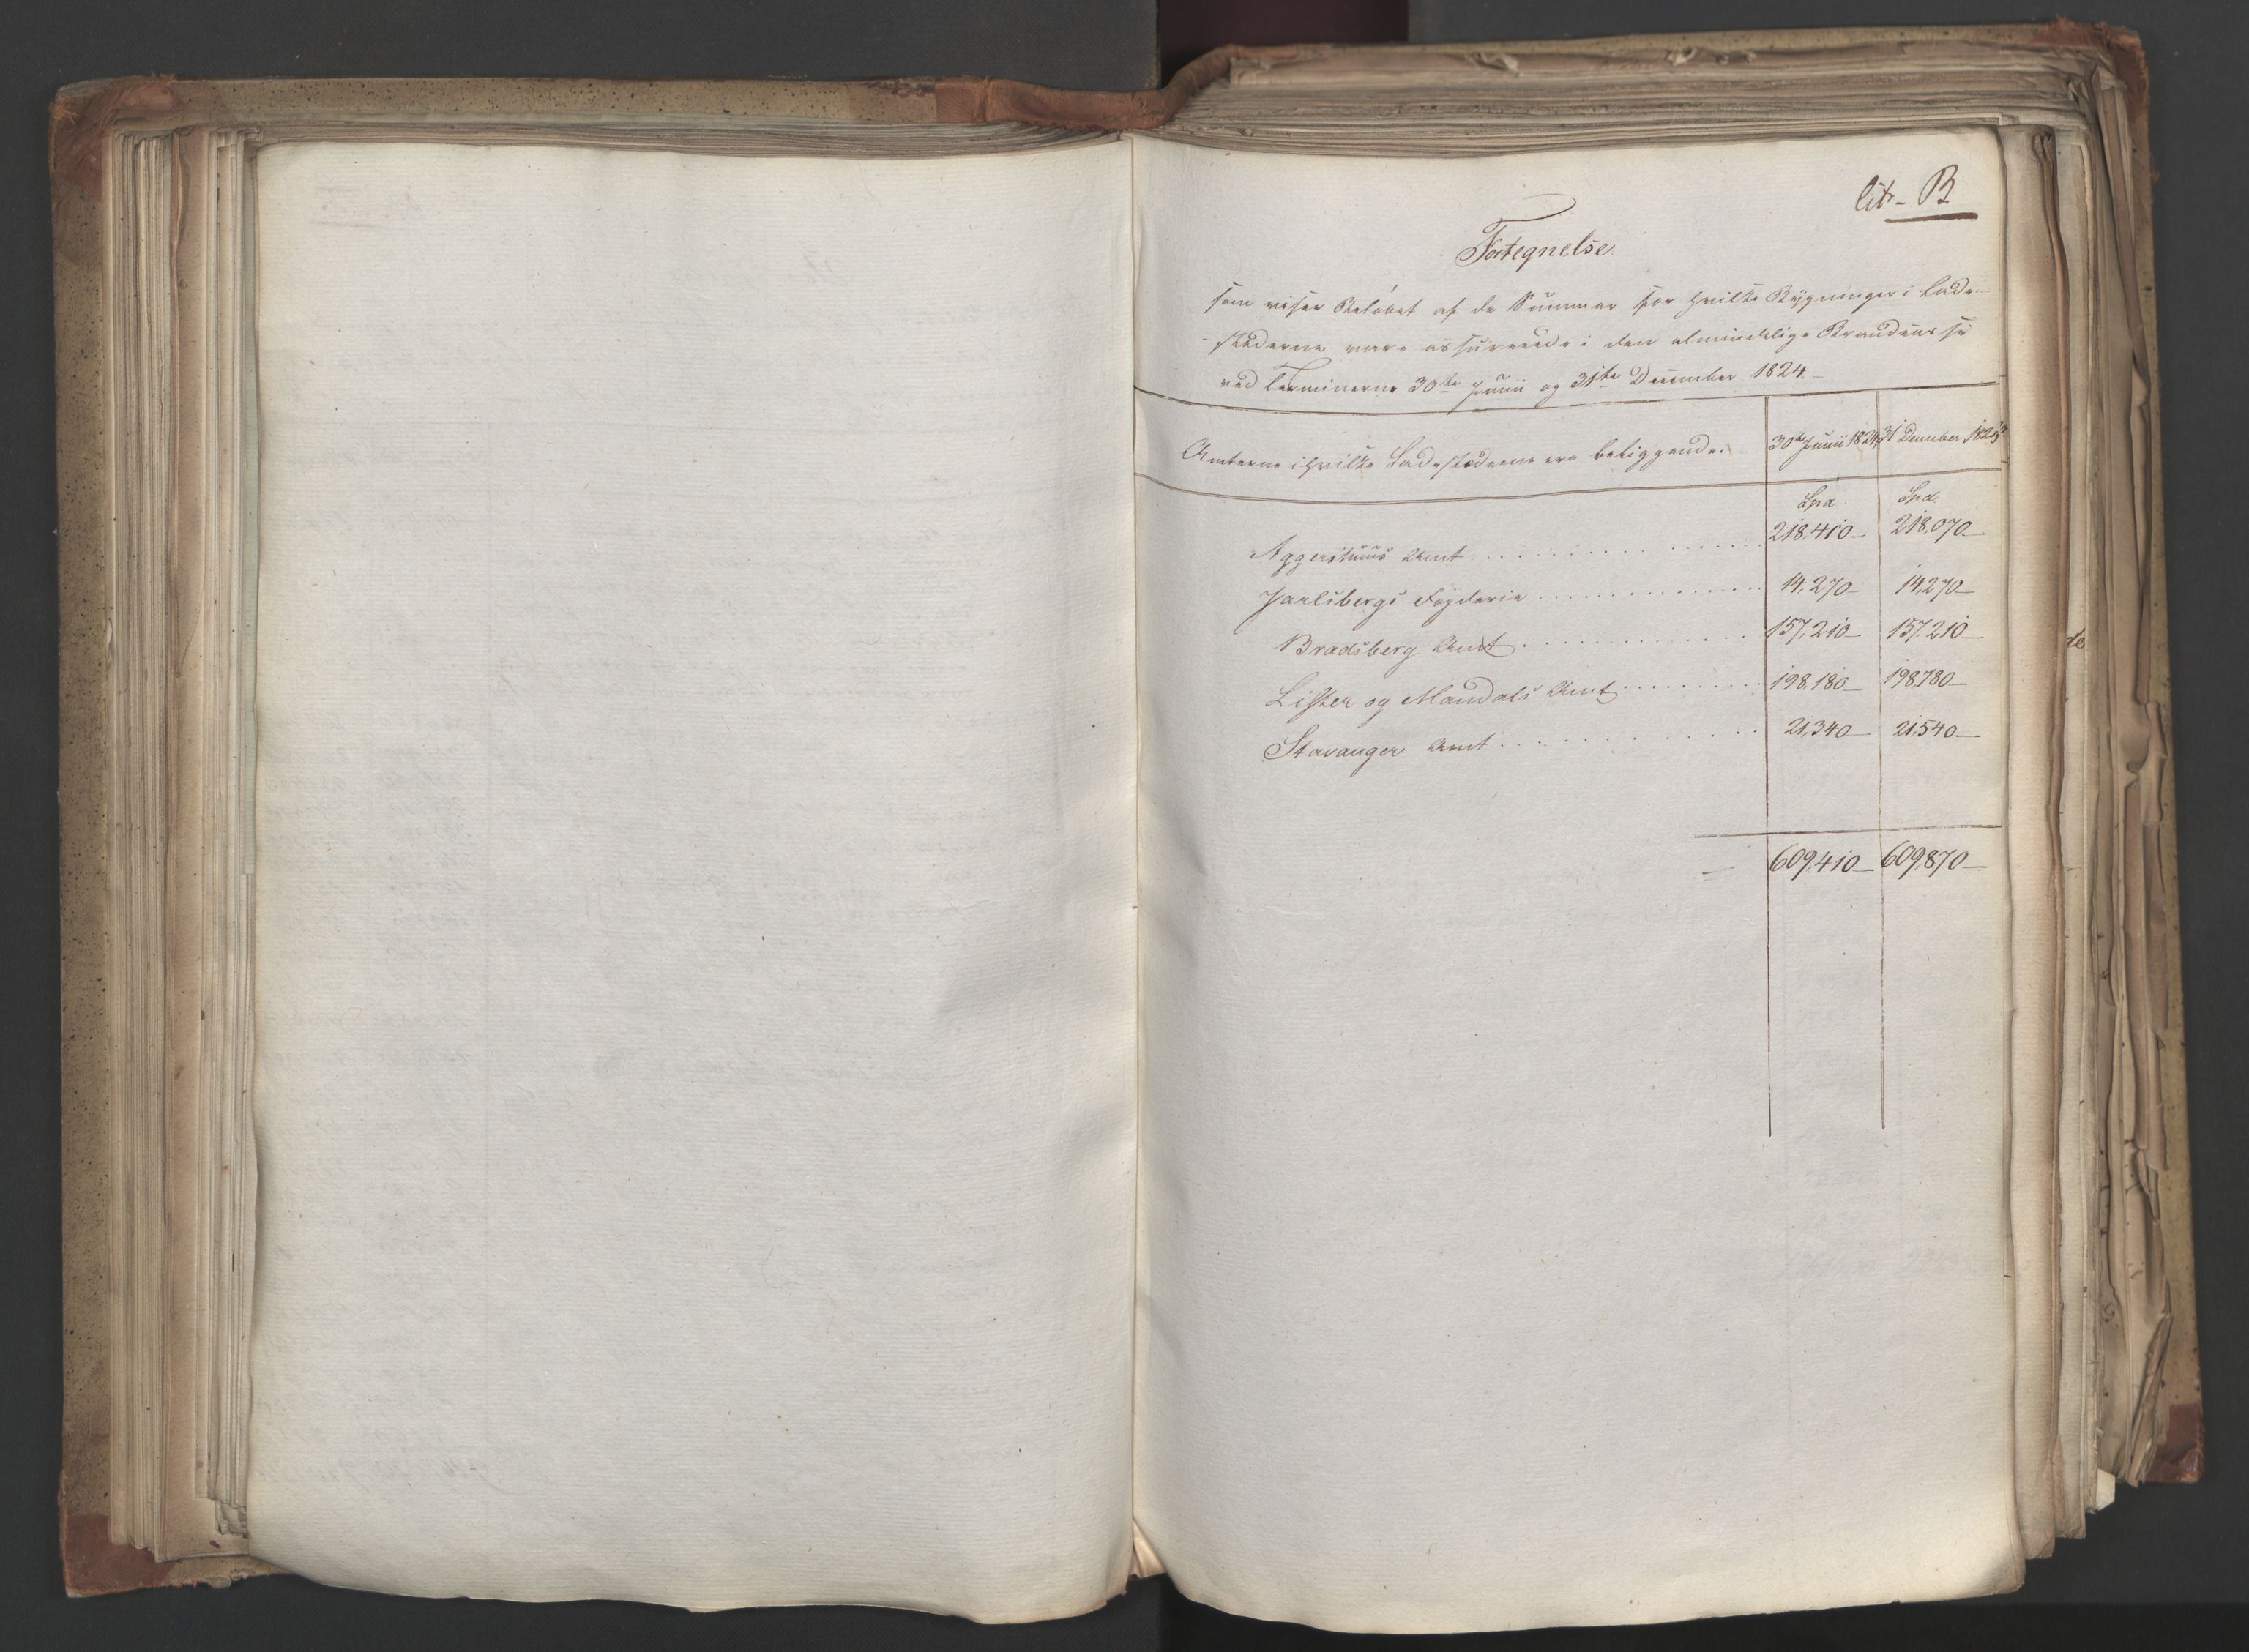 lit. B
Fortegnelse
som viser Beløbet af de Summer for hvilke Bygninger i Lade-
stæderne vare assurerede i den almindelige Brandcasse
ved Terminerne 30te Junii og 31te December 1824.
Amterne i hvilke Ladestæderne ere beliggende. 30te Junii 1824 31 December
Spd Spd.
Aggershuus Amt 218,410 218,070
Jarlsbergs Fogderie 14,270 14,270
Bradsberg Amt 157,210 157,210
Lister og Mandals Amt 198,180 198,780
Stavanger Amt 21,340 21,540
609,410 609,870